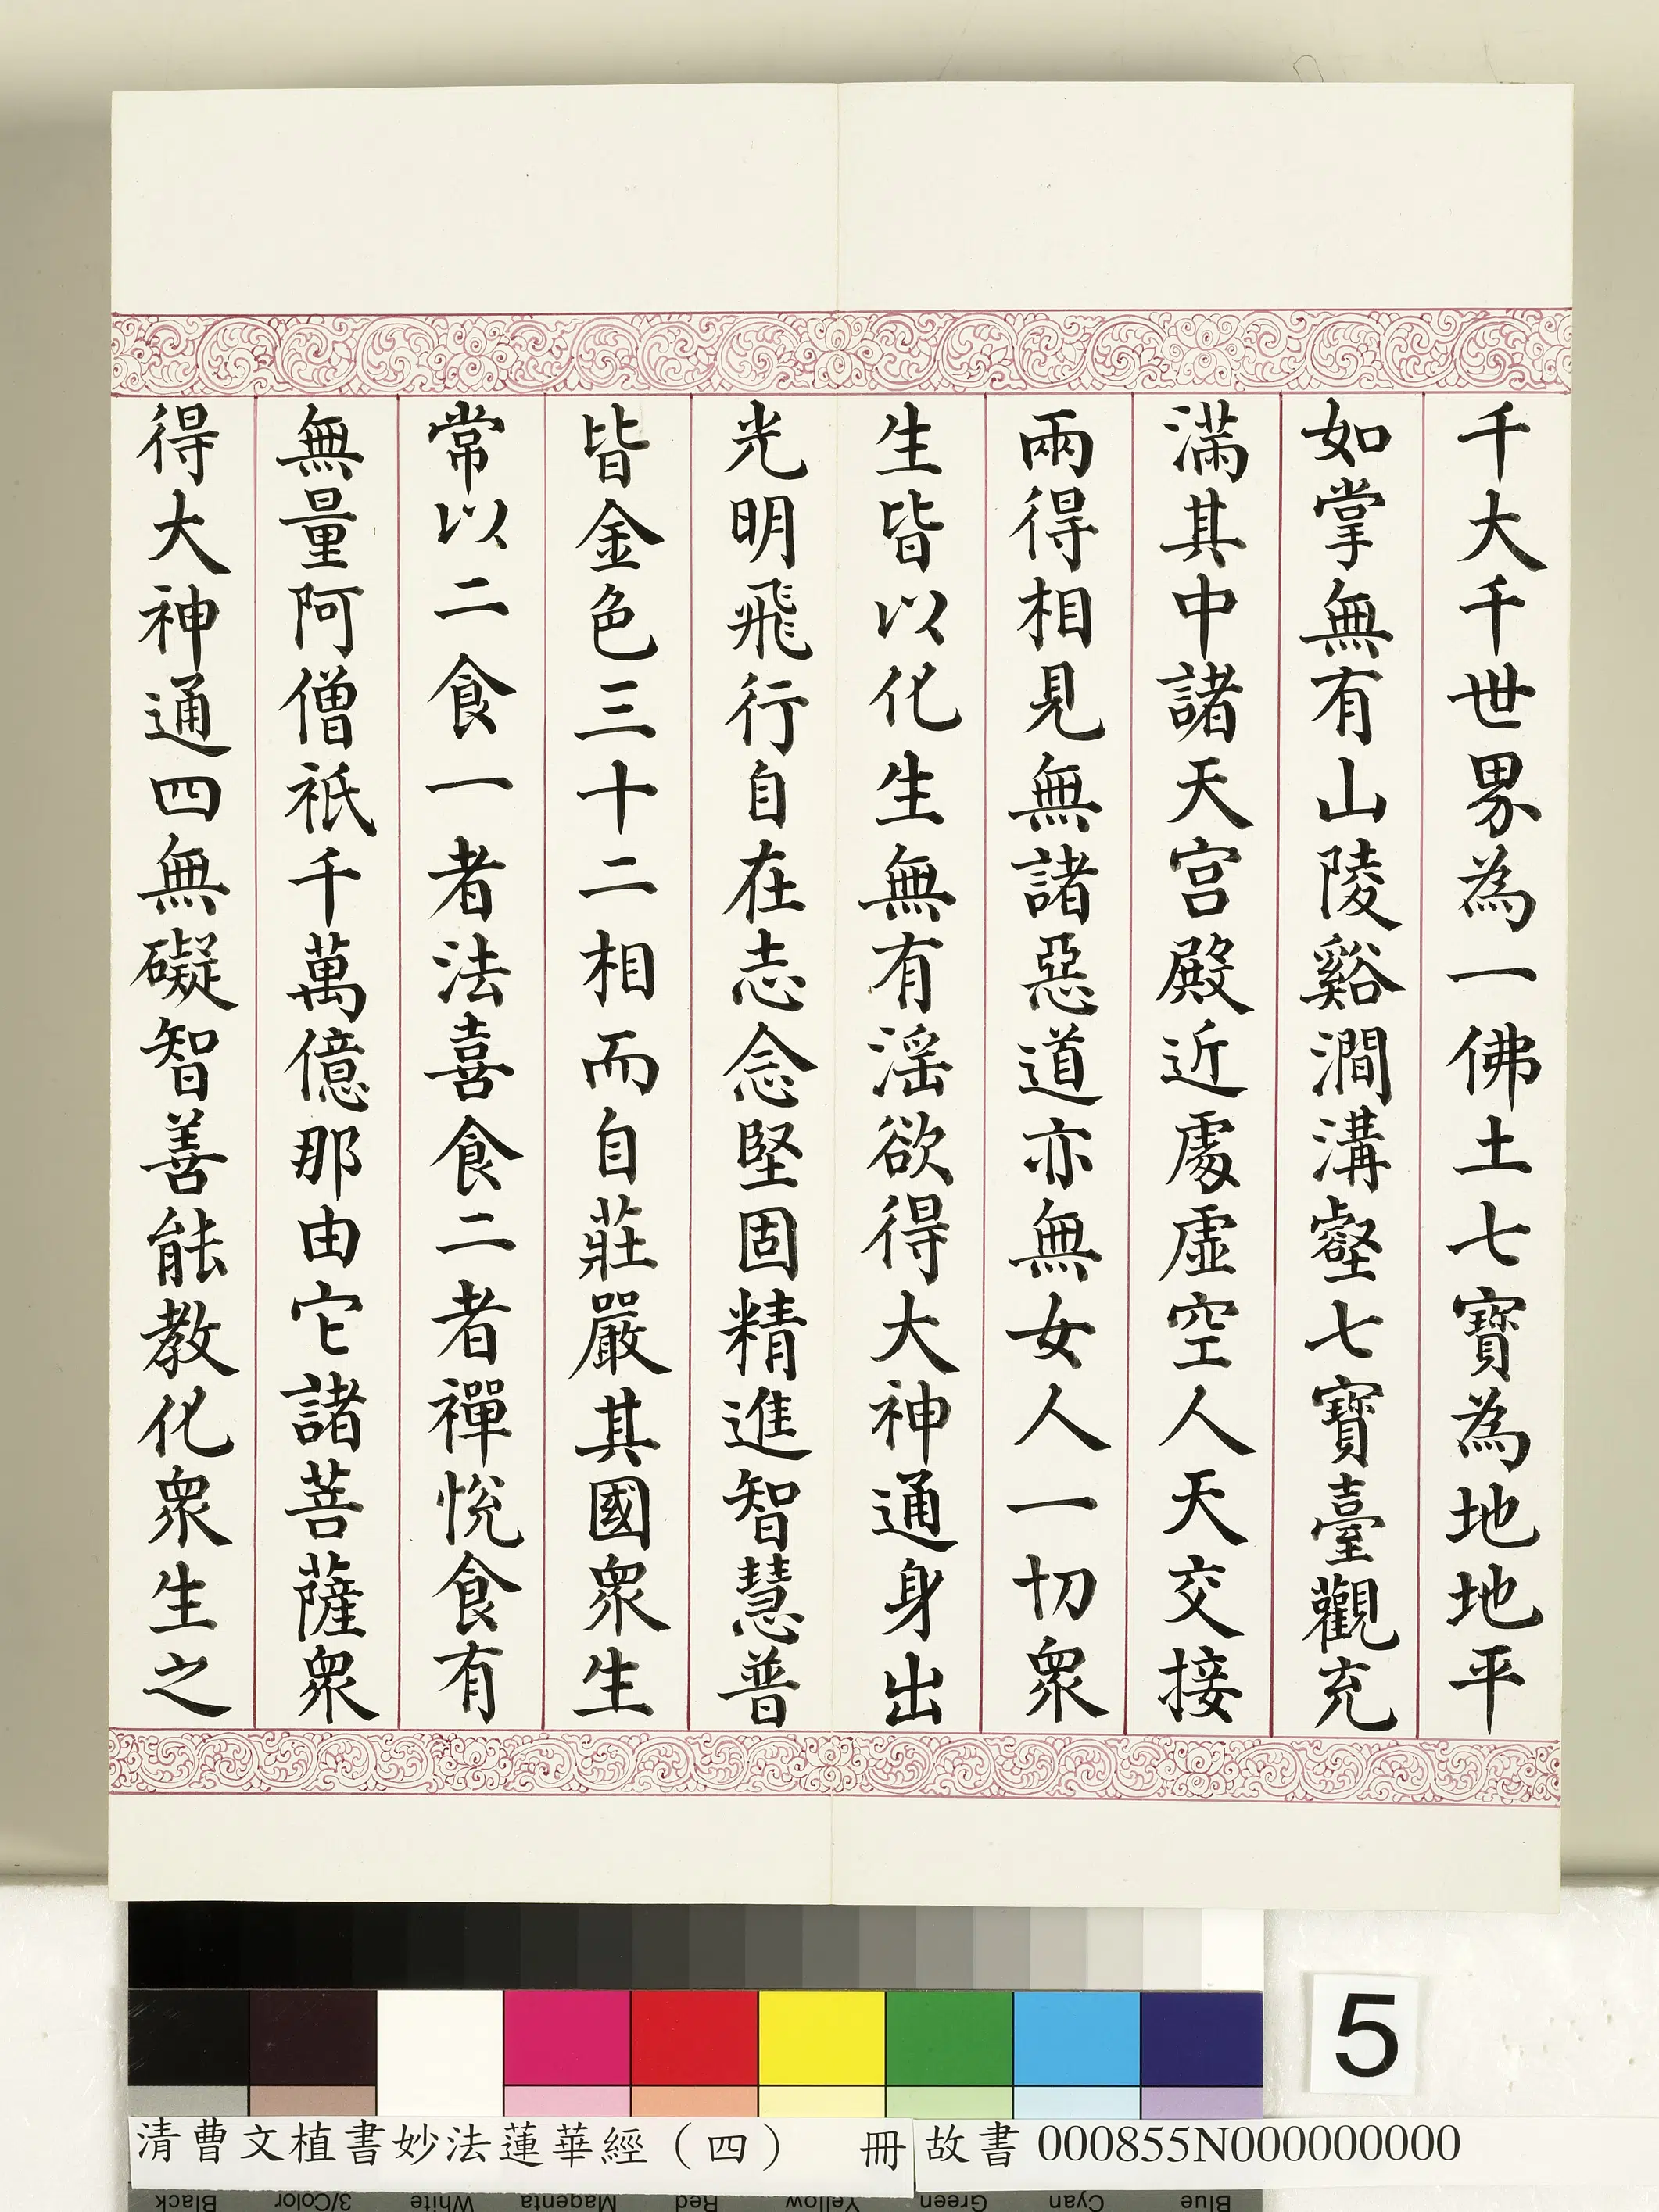 千大千世界為一佛土七寶為地地平
如掌無有山陵谿澗溝壑七寶臺觀充
滿其中諸天宮殿近處虛空人天交接
兩得相見無諸惡道亦無女人一切衆
生皆以化生無有淫欲得大神通身出
光明飛行自在志念堅固精進智慧普
皆金色三十二相而自莊嚴其國衆生
常以二食一者法喜食二者禪悅食有
無量阿僧祇千萬億那由它諸菩薩衆
得大神通四無礙智善能教化衆生之
5
清曹文植書妙法蓮華經（四） 冊 故書 000855N000000000
Black 3/Color White Magenta Red Yellow Green Cyan Blue